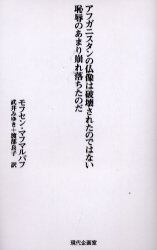 アフガニスタンの仏像は破壊されたのではない
恥辱のあまり崩れ落ちたのだ
モフセン・マフマルバフ
武井みゆき+渡部良子 訳
現代企画室